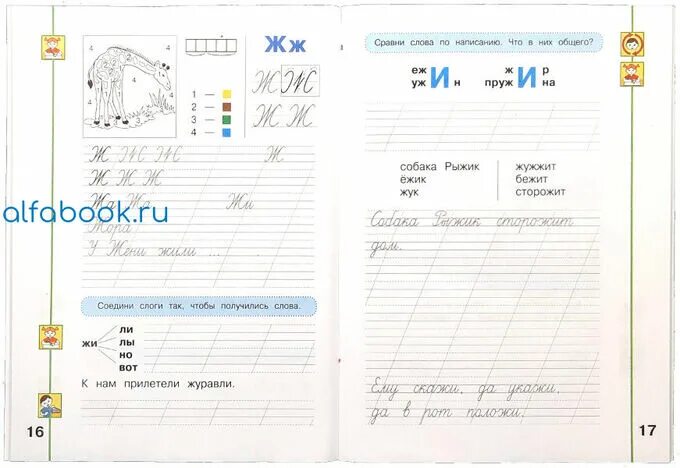 Жж
4 4
4
4
4
1 —
2 —
3 —
4 —
Ж Ж
Ж Ж
Ж Ж Ж Ж
Ж Ж Ж
Жа Жа Жи
Жора
У Жени жили ... .
alfabook.ru
Соедини слоги так, чтобы получились слова.
жи
ли
лы
но
вот
К нам прилетели журавли.
16
Сравни слова по написанию. Что в них общего?
еж
уж И н
ж
пруж И р
на
собака Рыжик жужжит
ёжик бежит
жук сторожит
Собака Рыжик сторожит
дом.
Ему скажи, да укажи,
да в рот положи.
17